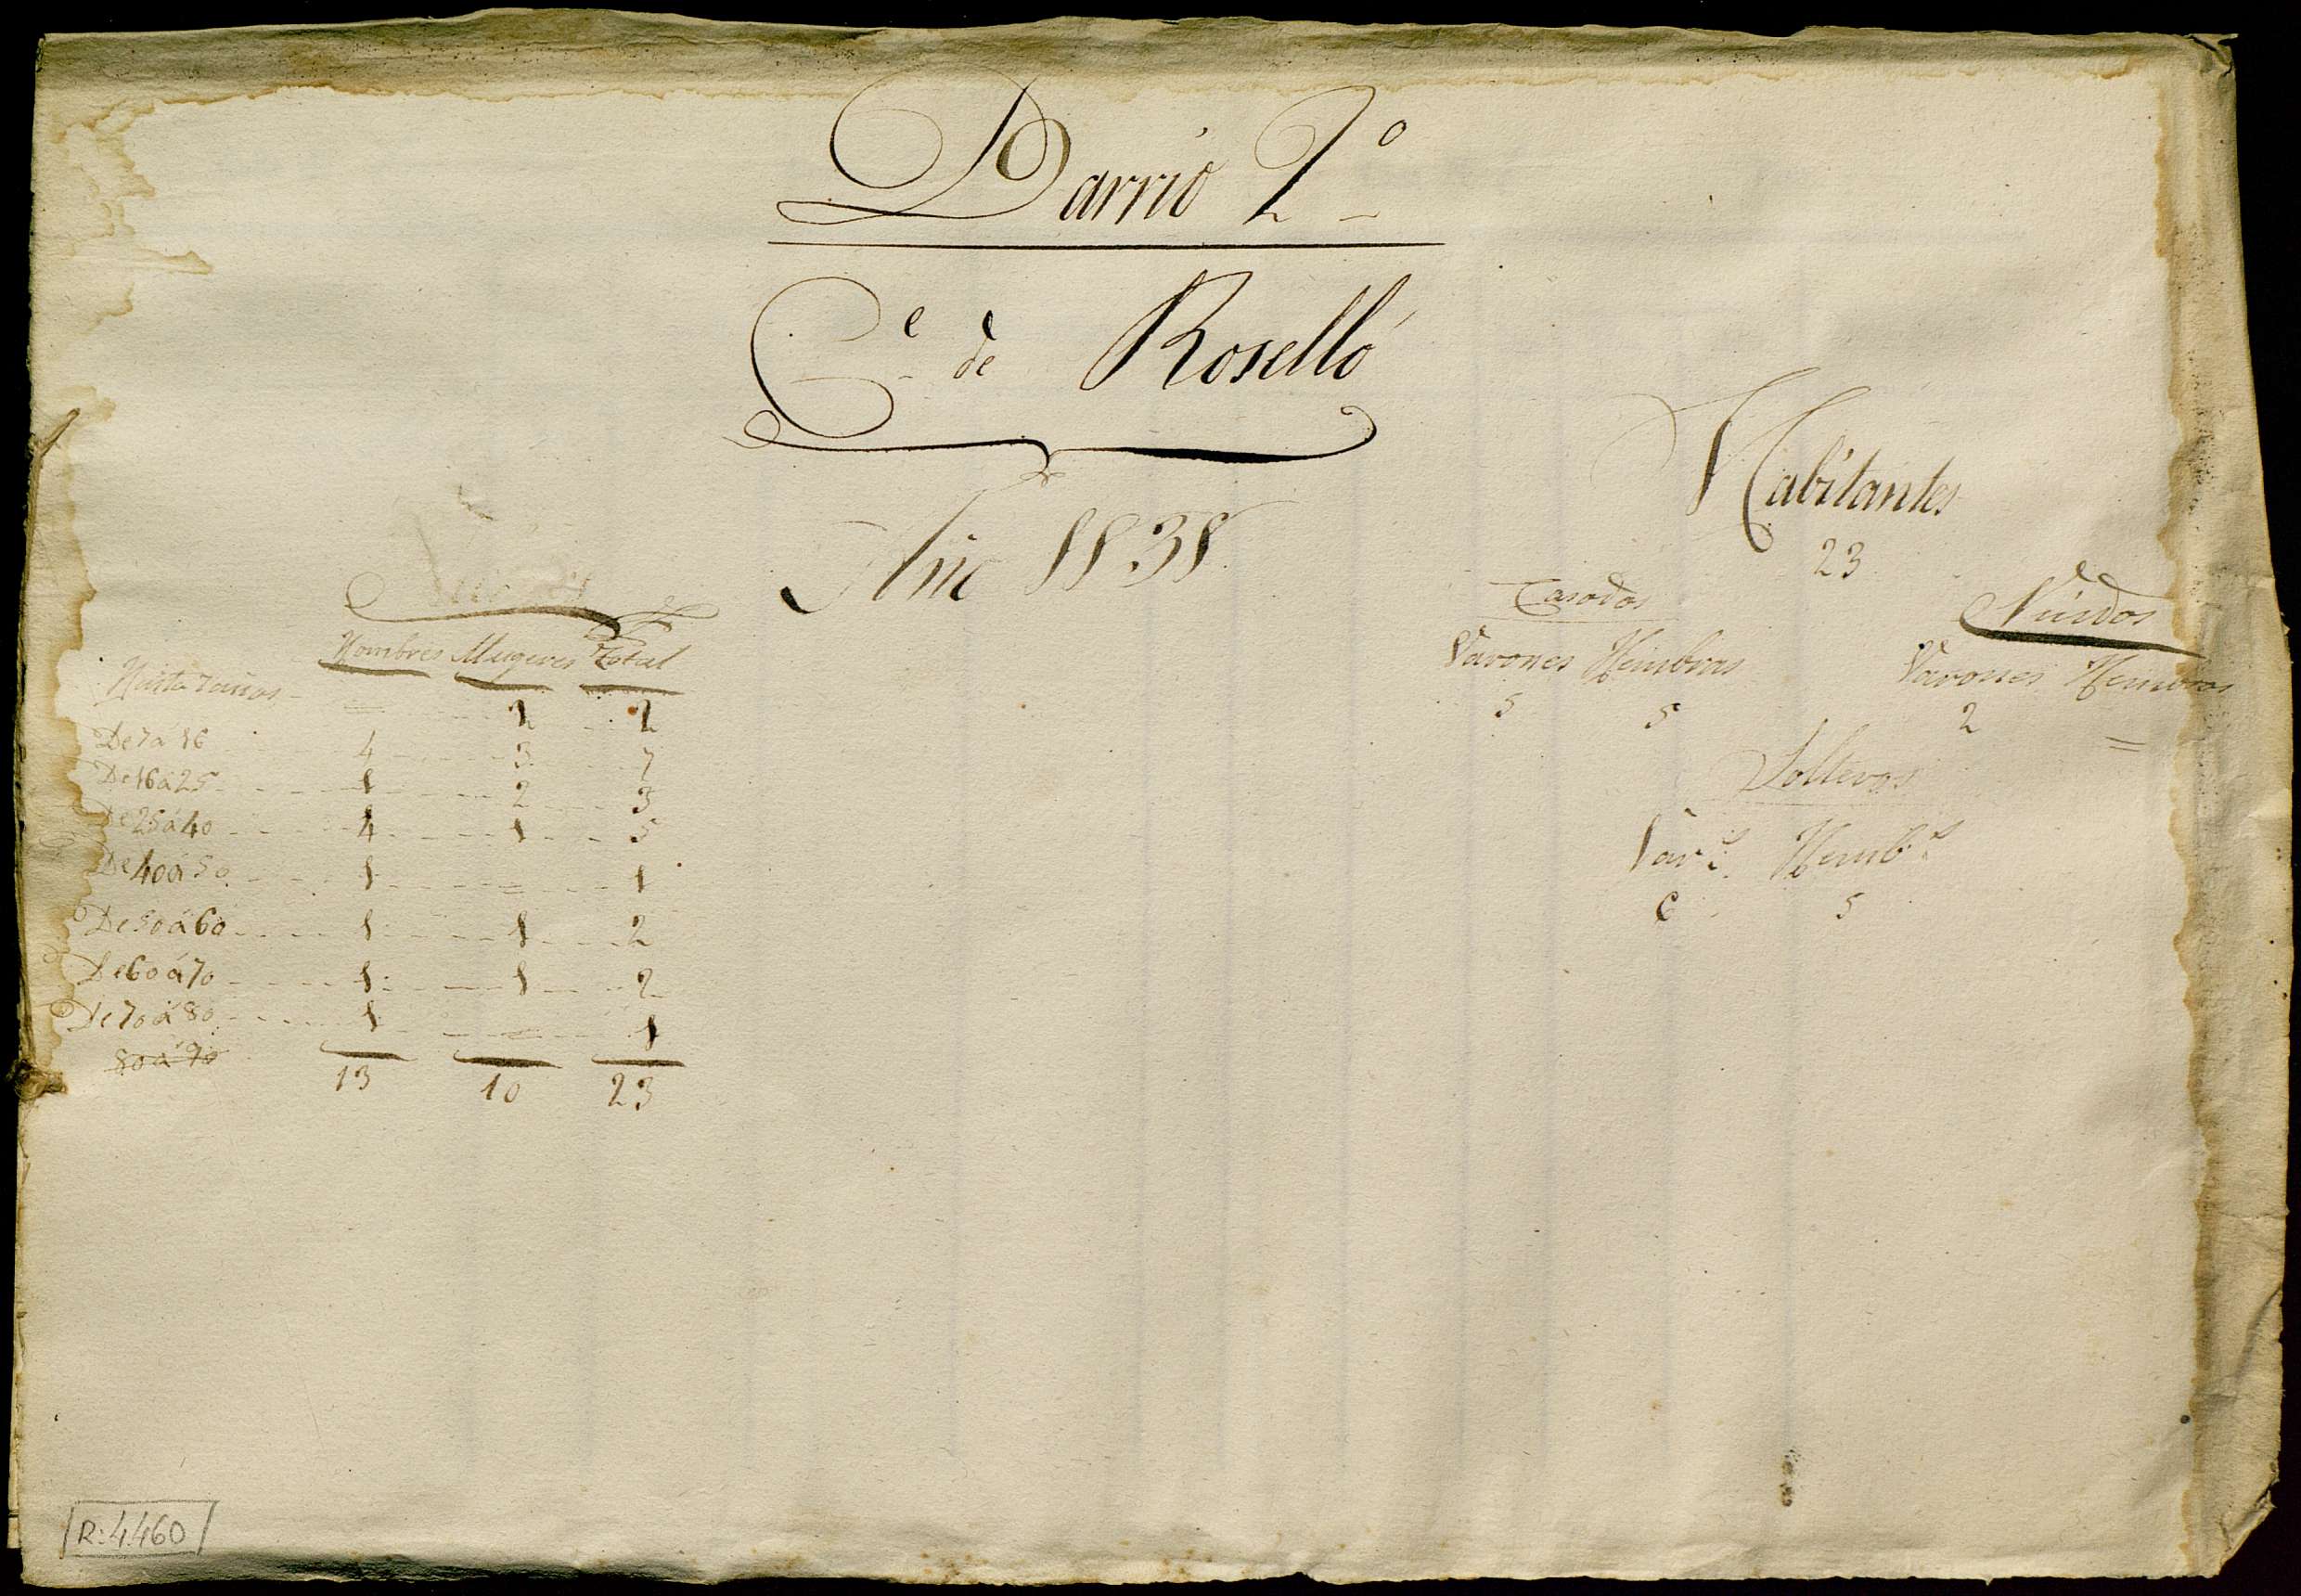 Barrio 2º
C.e de Roselló
Año 1838
Habitantes
23
Hombres Mugeres Total
Hasta 7 años = 2 2
De 7 á 16 4 3 7
De 16 á 25 1 2 3
De 25 á 40 4 1 5
De 40 á 50 1 = 1
De 50 á 60 1 1 2
De 60 á 70 1 1 2
De 70 á 80 1 = 1
80 á 90
13 10 23
Casados
Varones Hembras
5 5
Viudos
Varones Hembras
2 =
Solteros
Var.s Hemb.s
6 5
R: 4.460